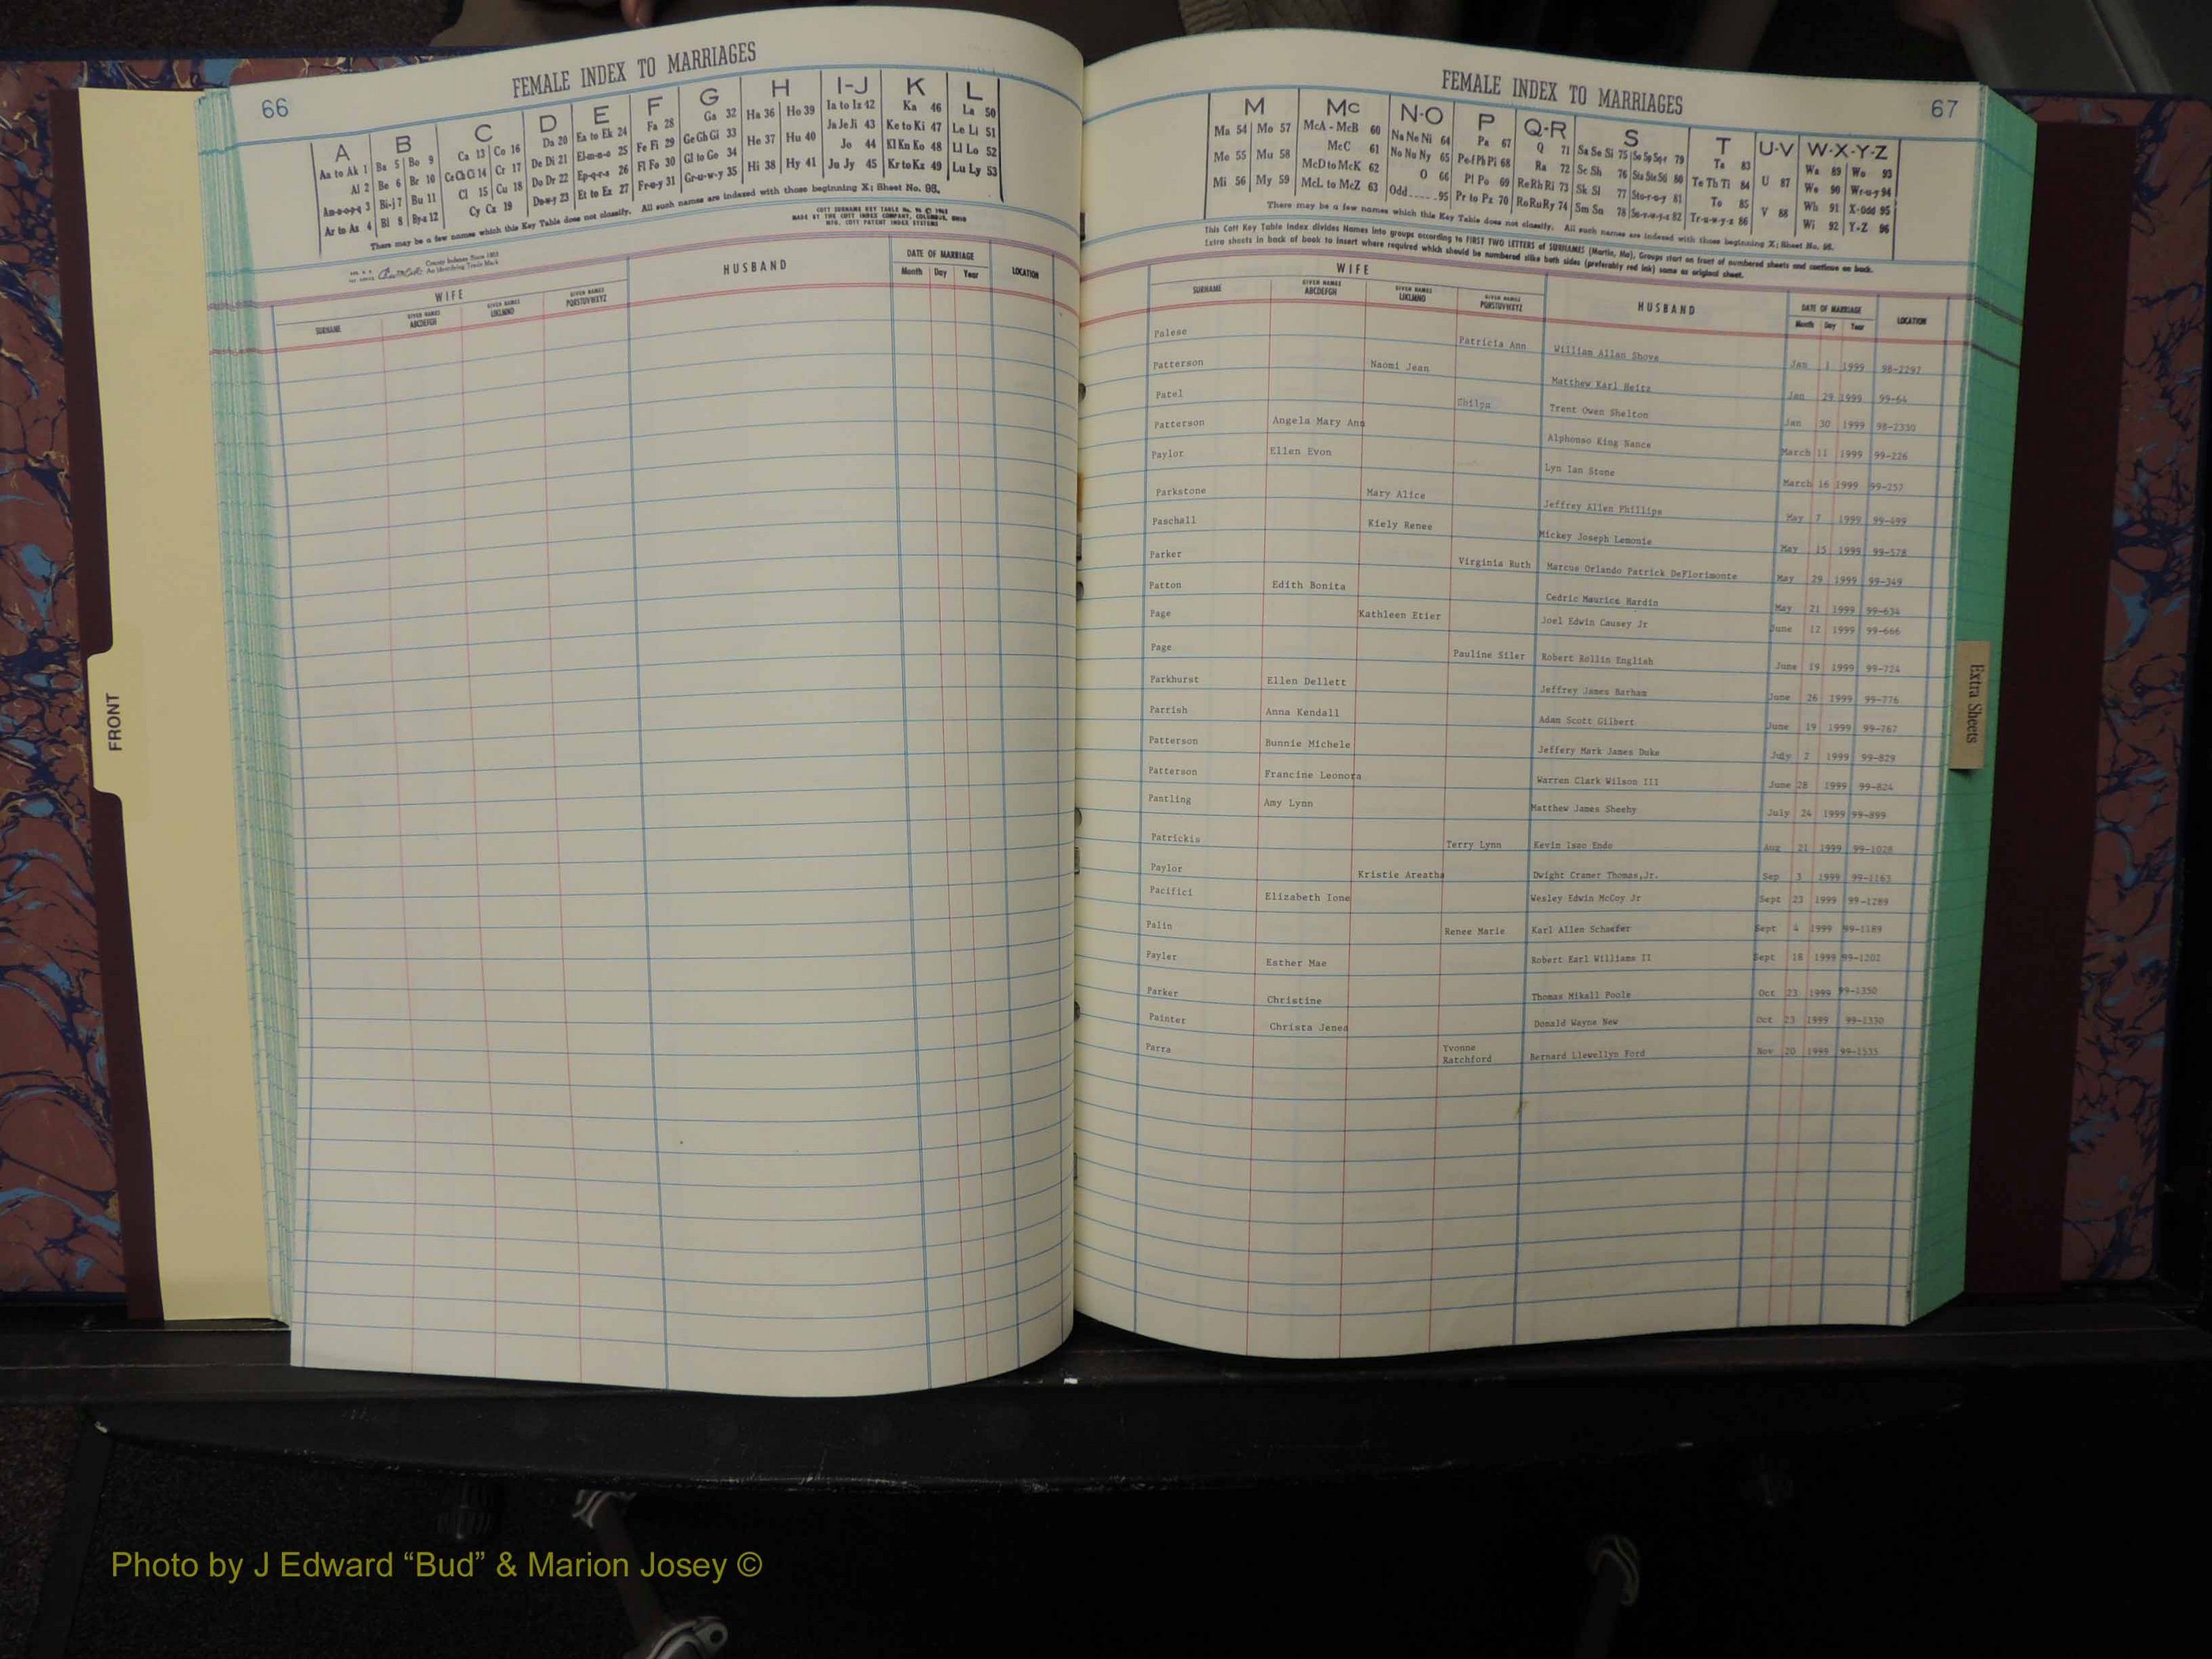 66
FEMALE INDEX TO MARRIAGES
A B C D E F G H I-J K L
Aa to Ak 1 Ba 5 Bo 9 Ca 13 Co 16 Da 20 Ea to Ek 24 Fa 28 Ga 32 Ha 36 Ho 39 Ia to Iz 42 Ka 46 La 50
Al 2 Be 6 Br 10 Ce Ch Ci 14 Cr 17 De Di 21 El-m-n-o 25 Fe Fi 29 Ge Gh Gi 33 He 37 Hu 40 Ja Je Ji 43 Ke to Ki 47 Le Li 51
Am-n-o-p-q 3 Bi-j 7 Bu 11 Cl 15 Cu 18 Do Dr 22 Ep-q-r-s 26 Fl Fo 30 Gl to Go 34 Hi 38 Hy 41 Jo 44 Kl Kn Ko 48 Ll Lo 52
Ar to Az 4 Bl 8 By-z 12 Cy Cz 19 Du-w-y 23 Et to Ez 27 Fr-u-y 31 Gr-u-w-y 35 Ju Jy 45 Kr to Kz 49 Lu Ly 53
There may be a few names which this Key Table does not classify. All such names are indexed with those beginning X; Sheet No. 95.
COTT SURNAME KEY TABLE
MADE BY THE COTT INDEX COMPANY, COLUMBUS, OHIO
MFG. COTT PATENT INDEX SYSTEMS
County Indexes Since 1888
An Identifying Trade Mark
WIFE HUSBAND DATE OF MARRIAGE LOCATION
SURNAME GIVEN NAMES ABCDEFGH GIVEN NAMES IJKLMNO GIVEN NAMES PQRSTUVWXYZ Month Day Year
FRONT
FEMALE INDEX TO MARRIAGES
67
M Mc N-O P Q-R S T U-V W-X-Y-Z
Ma 54 Mo 57 McA - McB 60 Na Ne Ni 64 Pa 67 Q 71 Sa Sc Si 75 Ta 83 Wa 89 Wo 93
Me 55 Mu 58 McC 61 No Nu Ny 65 Pe Pf Ph Pi 68 Ra 72 Se Sh 76 Te Th Ti 84 U 87 We 90 Wr-u-y 94
Mi 56 My 59 McD to McK 62 O 66 Pl Po 69 Re Rh Ri 73 Sk Sl 77 To 85 Wh 91 X-Odd 95
McL to McZ 63 Odd 95 Pr to Pz 70 Ro Ru Ry 74 Sm Sn 78 Tr-u-w-y-z 86 V 88 Wi 92 Y-Z 96
There may be a few names which this Key Table does not classify. All such names are indexed with those beginning X; Sheet No. 95.
This Cott Key Table Index divides Names into groups according to FIRST TWO LETTERS of SURNAMES (Martin, Ma). Groups start on front of numbered sheets and continue on back.
Extra sheets in back of book to insert where required which should be numbered alike both sides (preferably red ink) same as original sheet.
WIFE HUSBAND DATE OF MARRIAGE LOCATION
SURNAME GIVEN NAMES ABCDEFGH GIVEN NAMES IJKLMNO GIVEN NAMES PQRSTUVWXYZ Month Day Year
Palese Patricia Ann William Allan Shove Jan 1 1999 98-2297
Patterson Naomi Jean Matthew Karl Heitz Jan 29 1999 99-64
Patel Shilpa Trent Owen Shelton Jan 30 1999 98-2330
Patterson Angela Mary Ann Alphonso King Nance March 11 1999 99-226
Paylor Ellen Evon Lyn Ian Stone March 16 1999 99-257
Parkstone Mary Alice Jeffrey Allen Phillips May 7 1999 99-499
Paschall Kiely Renee Mickey Joseph Lemonie May 15 1999 99-578
Parker Virginia Ruth Marcus Orlando Patrick DeFlorimonte May 29 1999 99-349
Patton Edith Bonita Cedric Maurice Hardin May 21 1999 99-634
Page Kathleen Etier Joel Edwin Causey Jr June 12 1999 99-666
Page Pauline Siler Robert Rollin English June 19 1999 99-724
Parkhurst Ellen Dellett Jeffrey James Barham June 26 1999 99-776
Parrish Anna Kendall Adam Scott Gilbert June 19 1999 99-767
Patterson Bunnie Michele Jeffery Mark James Duke July 2 1999 99-829
Patterson Francine Leonora Warren Clark Wilson III June 28 1999 99-824
Pantling Amy Lynn Matthew James Sheehy July 24 1999 99-899
Patrickis Terry Lynn Kevin Isao Endo Aug 21 1999 99-1028
Paylor Kristie Areatha Dwight Cramer Thomas,Jr. Sep 3 1999 99-1163
Pacifici Elizabeth Ione Wesley Edwin McCoy Jr Sept 23 1999 99-1289
Palin Renee Marie Karl Allen Schaefer Sept 4 1999 99-1189
Payler Esther Mae Robert Earl Williams II Sept 18 1999 99-1202
Parker Christine Thomas Mikall Poole Oct 23 1999 99-1350
Painter Christa Jened Donald Wayne New Oct 23 1999 99-1330
Parra Yvonne Ratchford Bernard Llewellyn Ford Nov 20 1999 99-1535
Extra Sheets
Photo by J Edward “Bud” & Marion Josey ©